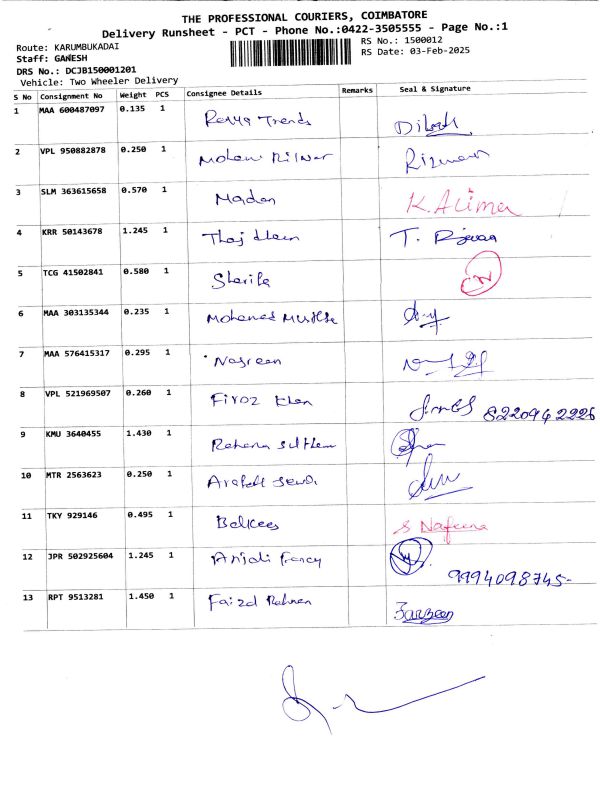 THE PROFESSIONAL COURIERS, COIMBATORE
Delivery Runsheet - PCT - Phone No.:0422-3505555 - Page No.:1
Route: KARUMBUKADAI
RS No.: 1500012
Staff: GANESH
RS Date: 03-Feb-2025
DRS No.: DCJB150001201
Vehicle: Two Wheeler Delivery
S No Consignment No Weight PCS Consignee Details Remarks Seal & Signature
1 MAA 600487097 0.135 1 Trends
2 VPL 950882878 0.250 1
3 SLM 363615658 0.570 1 Madan K. Alima
4 KRR 50143678 1.245 1 T.
5 TCG 41502841 0.580 1
6 MAA 303135344 0.235 1 Mohamed
7 MAA 576415317 0.295 1 Nasreen
8 VPL 521969507 0.260 1 Firoz Khan 8220942226
9 KMU 3640455 1.430 1
10 MTR 2563623 0.250 1
11 TKY 929146 0.495 1 Belkees S Nafeena
12 JPR 502925604 1.245 1 Anjali Fancy 9994098745
13 RPT 9513281 1.450 1